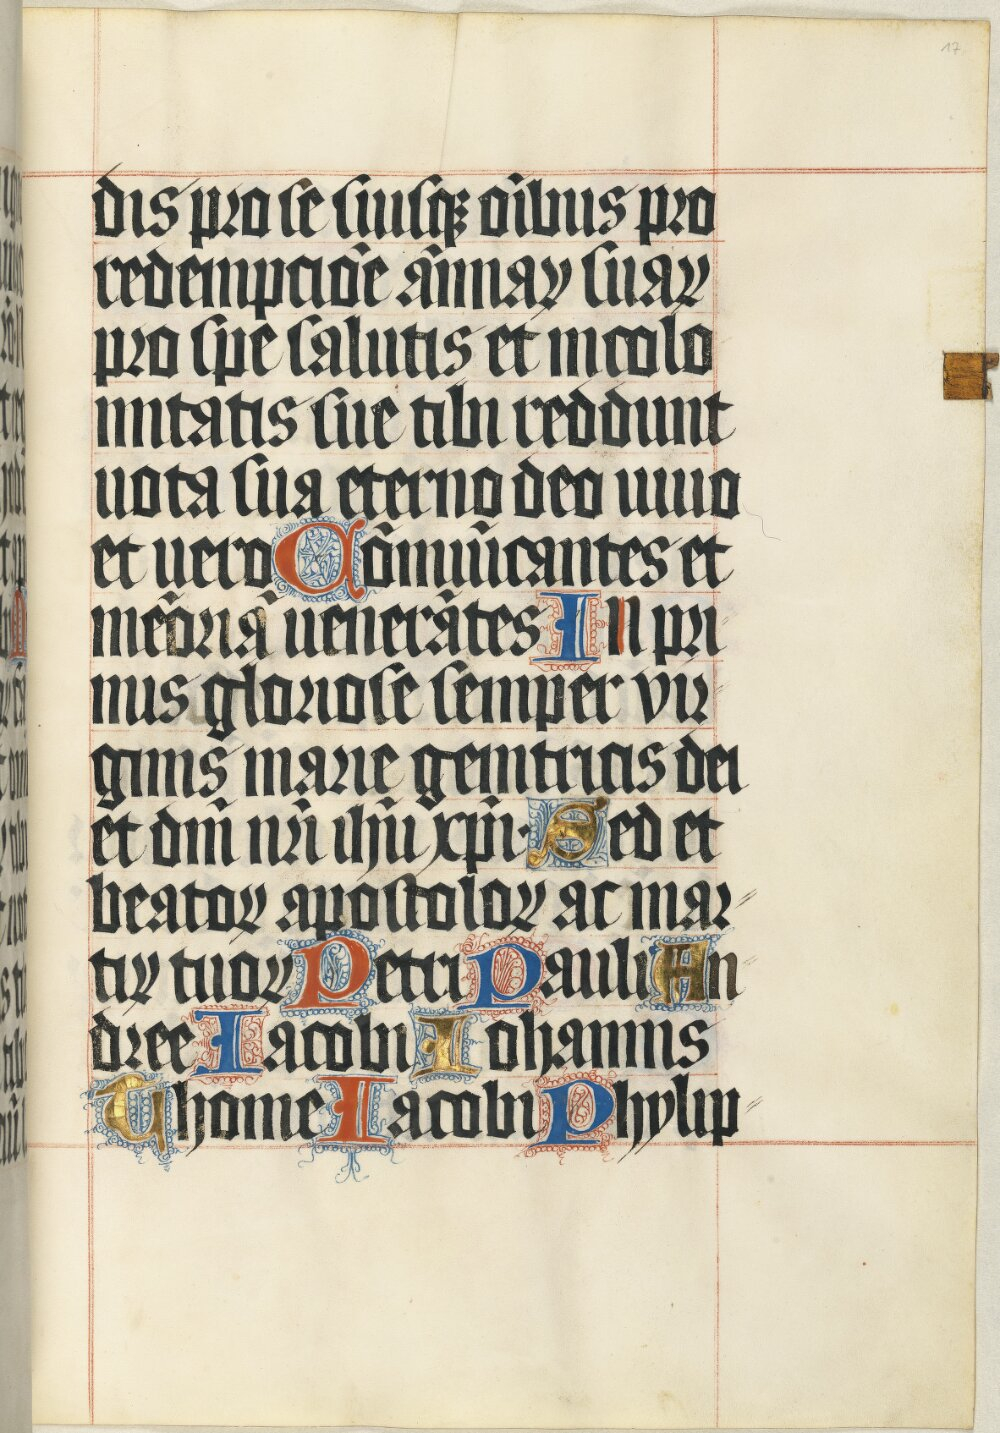 17
dis pro se suisqꝫ oĩbus pro
redempcioẽ aĩmaꝝ suaꝝ
pro spe salutis et incolo
mitatis sue tibi reddunt
uota sua eterno deo uiuo
et uero Cõmuũcantes et
meõriã uenerãtes In pri
mus gloriose semper vir
ginis marie genitricis dei
et dñi nr̃i ihũ xp̃i· Sed et
beatoꝝ apostoloꝝ ac mar
tiꝝ tuoꝝ Petri Pauli An
dree Iacobi Iohannis
Thome Iacobi Phylip